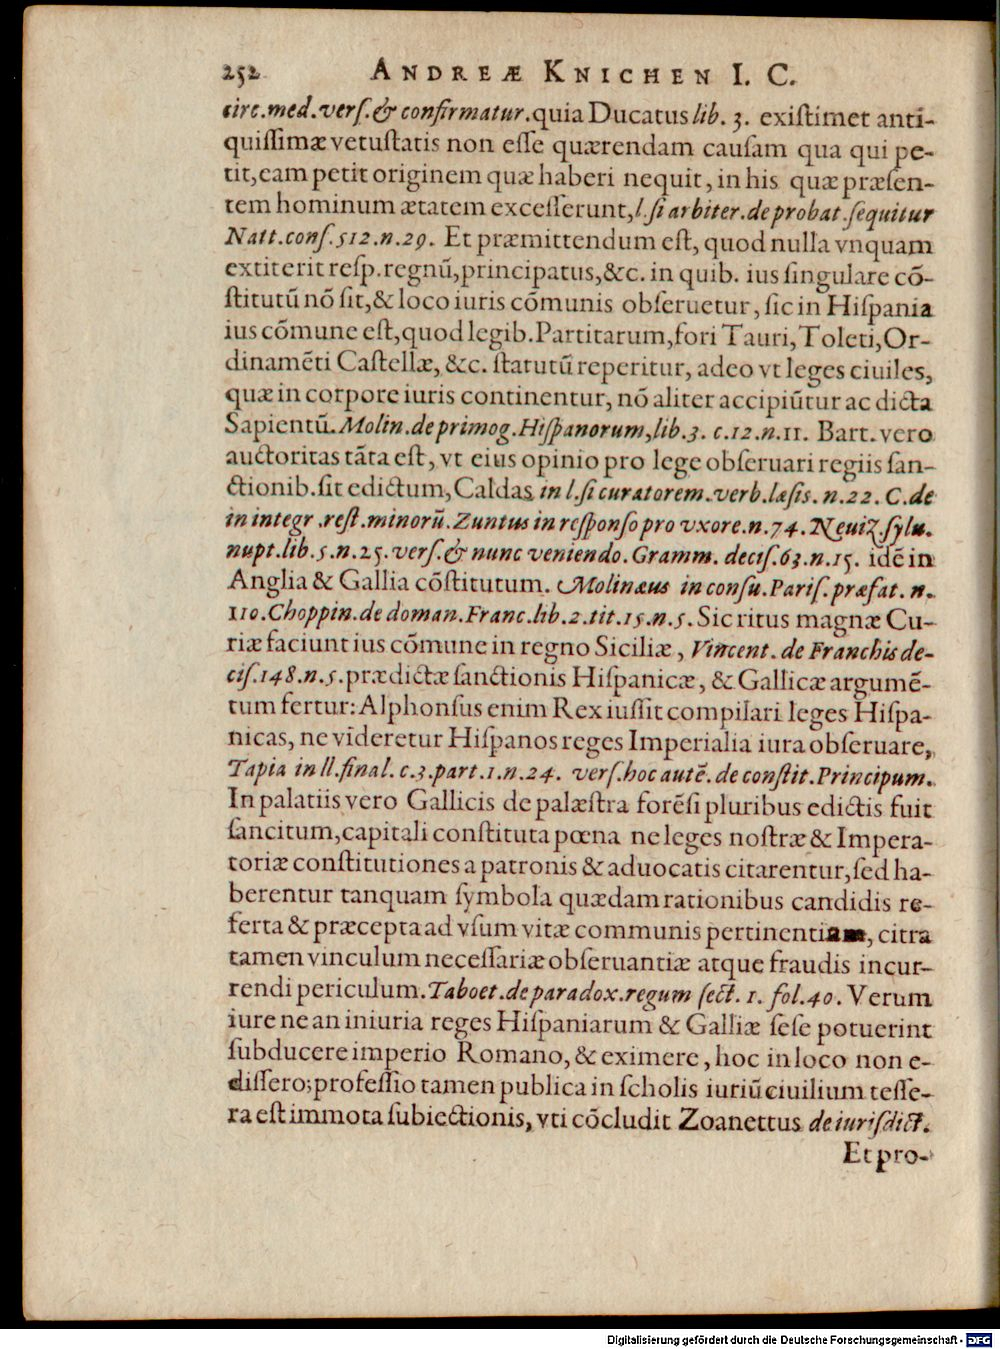 252 ANDREÆ KNICHEN I. C.
circ.med.verſ.& confirmatur.quia Ducatus lib. 3. exiſtimet anti-
quiſſimæ vetuſtatis non eſſe quærendam cauſam qua qui pe-
tit,eam petit originem quæ haberi nequit, in his quæ præſen-
tem hominum ætatem exceſſerunt,l.ſi arbiter.de probat.ſequitur
Natt.conſ.512.n.29. Et præmittendum eſt, quod nulla vnquam
extiterit reſp.regnũ,principatus,&c. in quib. ius ſingulare cõ-
ſtitutũ nõ ſit,& loco iuris cõmunis obſeruetur, ſic in Hiſpania
ius cõmune eſt,quod legib.Partitarum,fori Tauri,Toleti,Or-
dinamẽti Caſtellæ, &c. ſtatutũ reperitur, adeo vt leges ciuiles,
quæ in corpore iuris continentur, nõ aliter accipiũtur ac dicta
Sapientũ.Molin.de primog.Hiſpanorum,lib.3. c.12.n.11. Bart.vero
auctoritas tãta eſt, vt eius opinio pro lege obſeruari regiis ſan-
ctionib.ſit edictum, Caldas in l.ſi curatorem.verb.læſis. n.22. C.de
in integr.reſt.minorũ.Zuntus in reſponſo pro vxore.n.74. Neuiz.ſylu.
nupt.lib.5.n.25.verſ.& nunc veniendo.Gramm. deciſ.63.n.15. idẽ in
Anglia & Gallia cõſtitutum. Molinæus in conſu.Pariſ.præfat. n.
110.Choppin.de doman.Franc.lib.2.tit.15.n.5. Sic ritus magnæ Cu-
riæ faciunt ius cõmune in regno Siciliæ, Vincent. de Franchis de-
ciſ.148.n.5.prædictæ ſanctionis Hiſpanicæ, & Gallicæ argumẽ-
tum fertur: Alphonſus enim Rex iuſſit compilari leges Hiſpa-
nicas, ne videretur Hiſpanos reges Imperialia iura obſeruare,
Tapia in ll.final. c.3.part.1.n.24. verſ.hoc autẽ. de conſtit.Principum.
In palatiis vero Gallicis de palæſtra forẽſi pluribus edictis fuit
ſancitum,capitali conſtituta pœna ne leges noſtræ & Impera-
toriæ conſtitutiones a patronis & aduocatis citarentur,ſed ha-
berentur tanquam ſymbola quædam rationibus candidis re-
ferta & præcepta ad vſum vitæ communis pertinentiam, citra
tamen vinculum neceſſariæ obſeruantiæ atque fraudis incur-
rendi periculum.Taboet.de paradox.regum ſect. 1. fol.40. Verum
iure ne an iniuria reges Hiſpaniarum & Galliæ ſeſe potuerint
ſubducere imperio Romano, & eximere, hoc in loco non e-
diſſero;profeſſio tamen publica in ſcholis iuriũ ciuilium teſſe-
ra eſt immota ſubiectionis, vti cõcludit Zoanettus de iuriſdict.
Et pro-
Digitalisierung gefördert durch die Deutsche Forschungsgemeinschaft - DFG